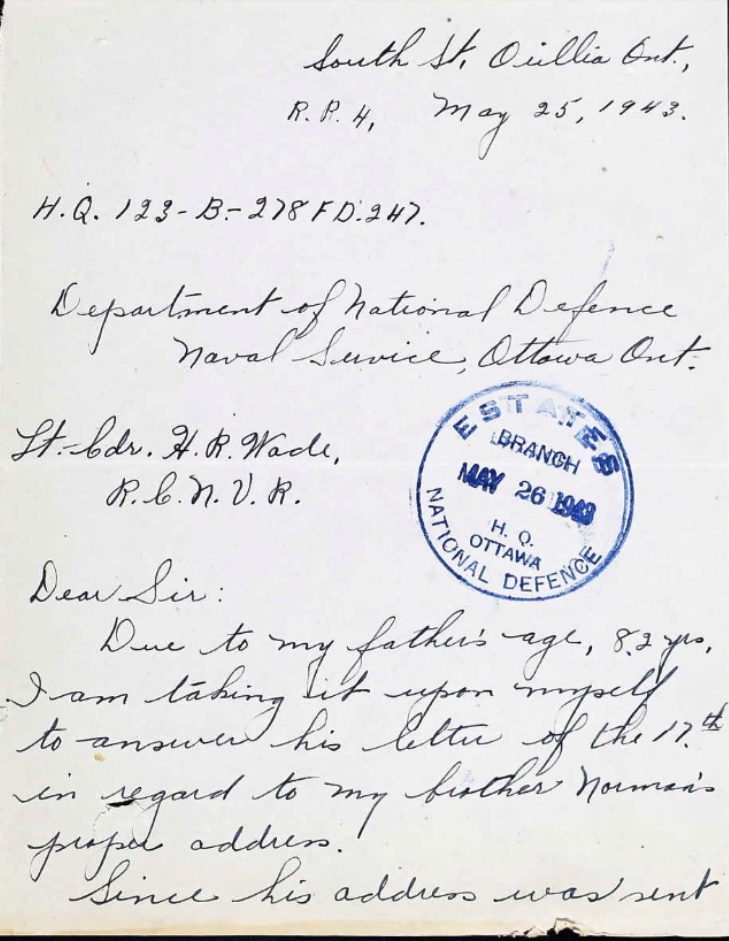 South St, Orillia Ont.,
R.R. 4, May 25, 1943.
H.Q. 123-B-278 FD.247.
Department of National Defence
Naval Service, Ottawa Ont.
Lt.-Cdr. H. R. Wade,
R.C.N.V.R.
ESTATES
BRANCH
MAY 26 1943
H. Q.
OTTAWA
NATIONAL DEFENCE
Dear Sir:
Due to my father's age, 82 yrs,
I am taking it upon myself
to answer his letter of the 17.th
in regard to my brother Norman's
proper address.
Since his address was sent